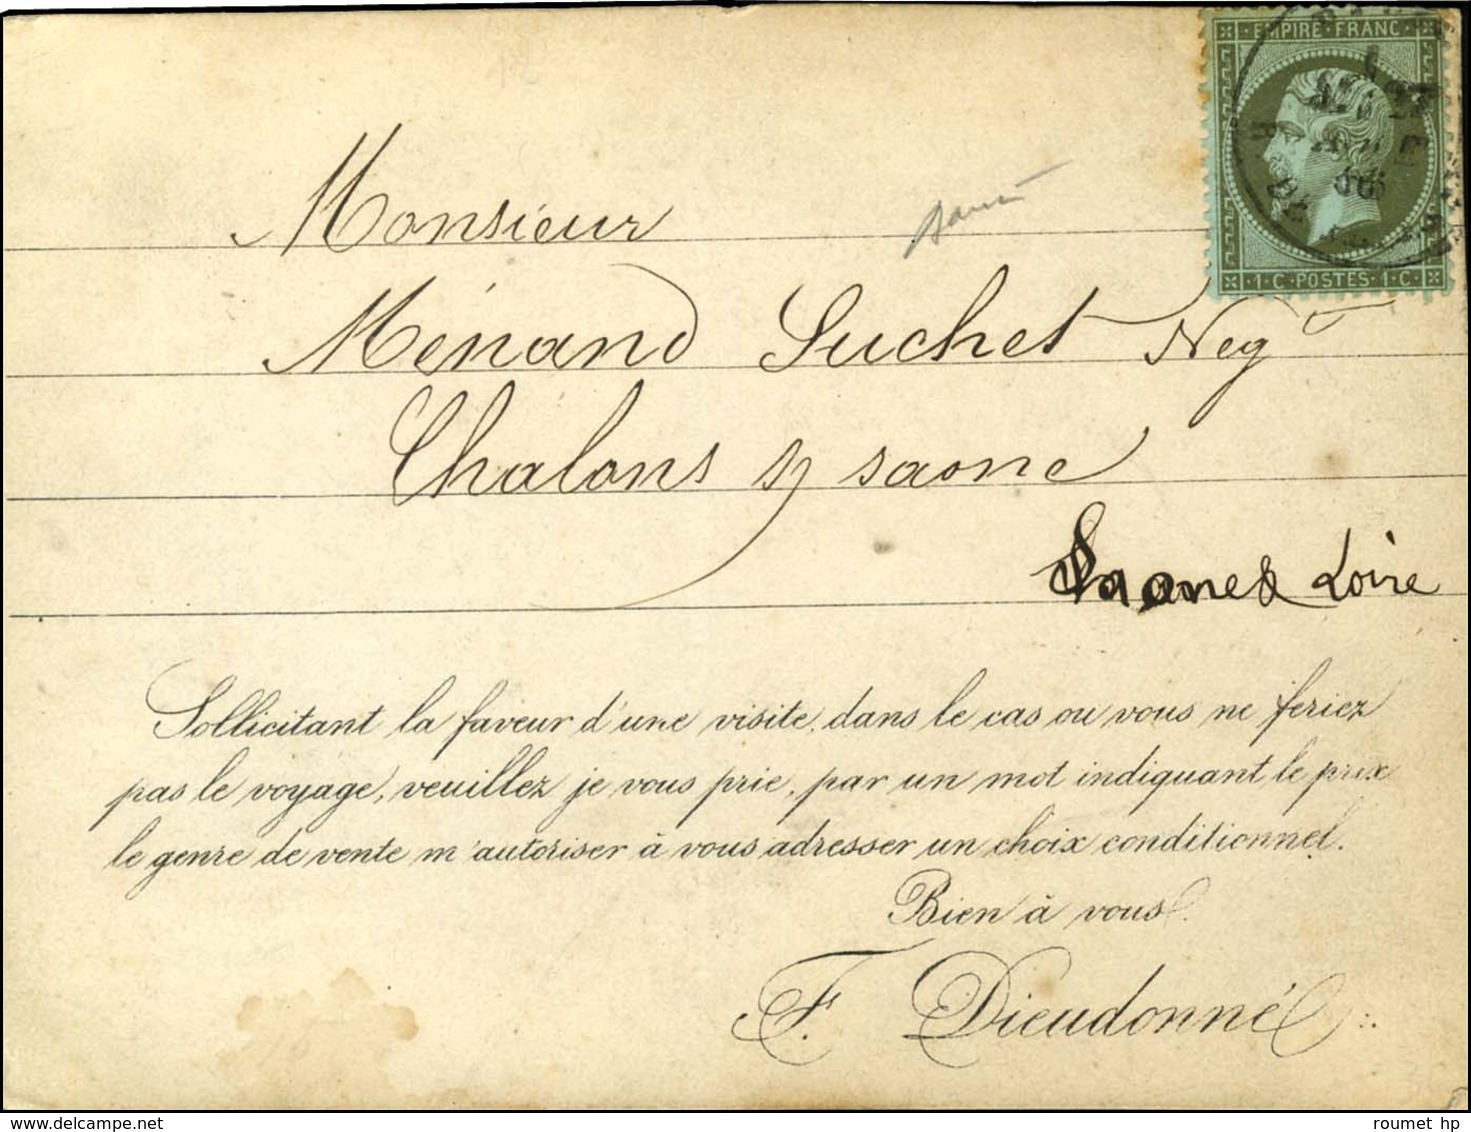 EMPIRE·FRANC
1·C·POSTES·1·C
Monsieur
Ménand Suchet Negt
Chalons s/ saone
Saone & Loire
Sollicitant la faveur d'une visite, dans le cas ou vous ne feriez
pas le voyage, veuillez je vous prie, par un mot indiquant le prix
le genre de vente m'autoriser à vous adresser un choix conditionnel.
Bien à vous.
F. Dieudonné
roumet hp